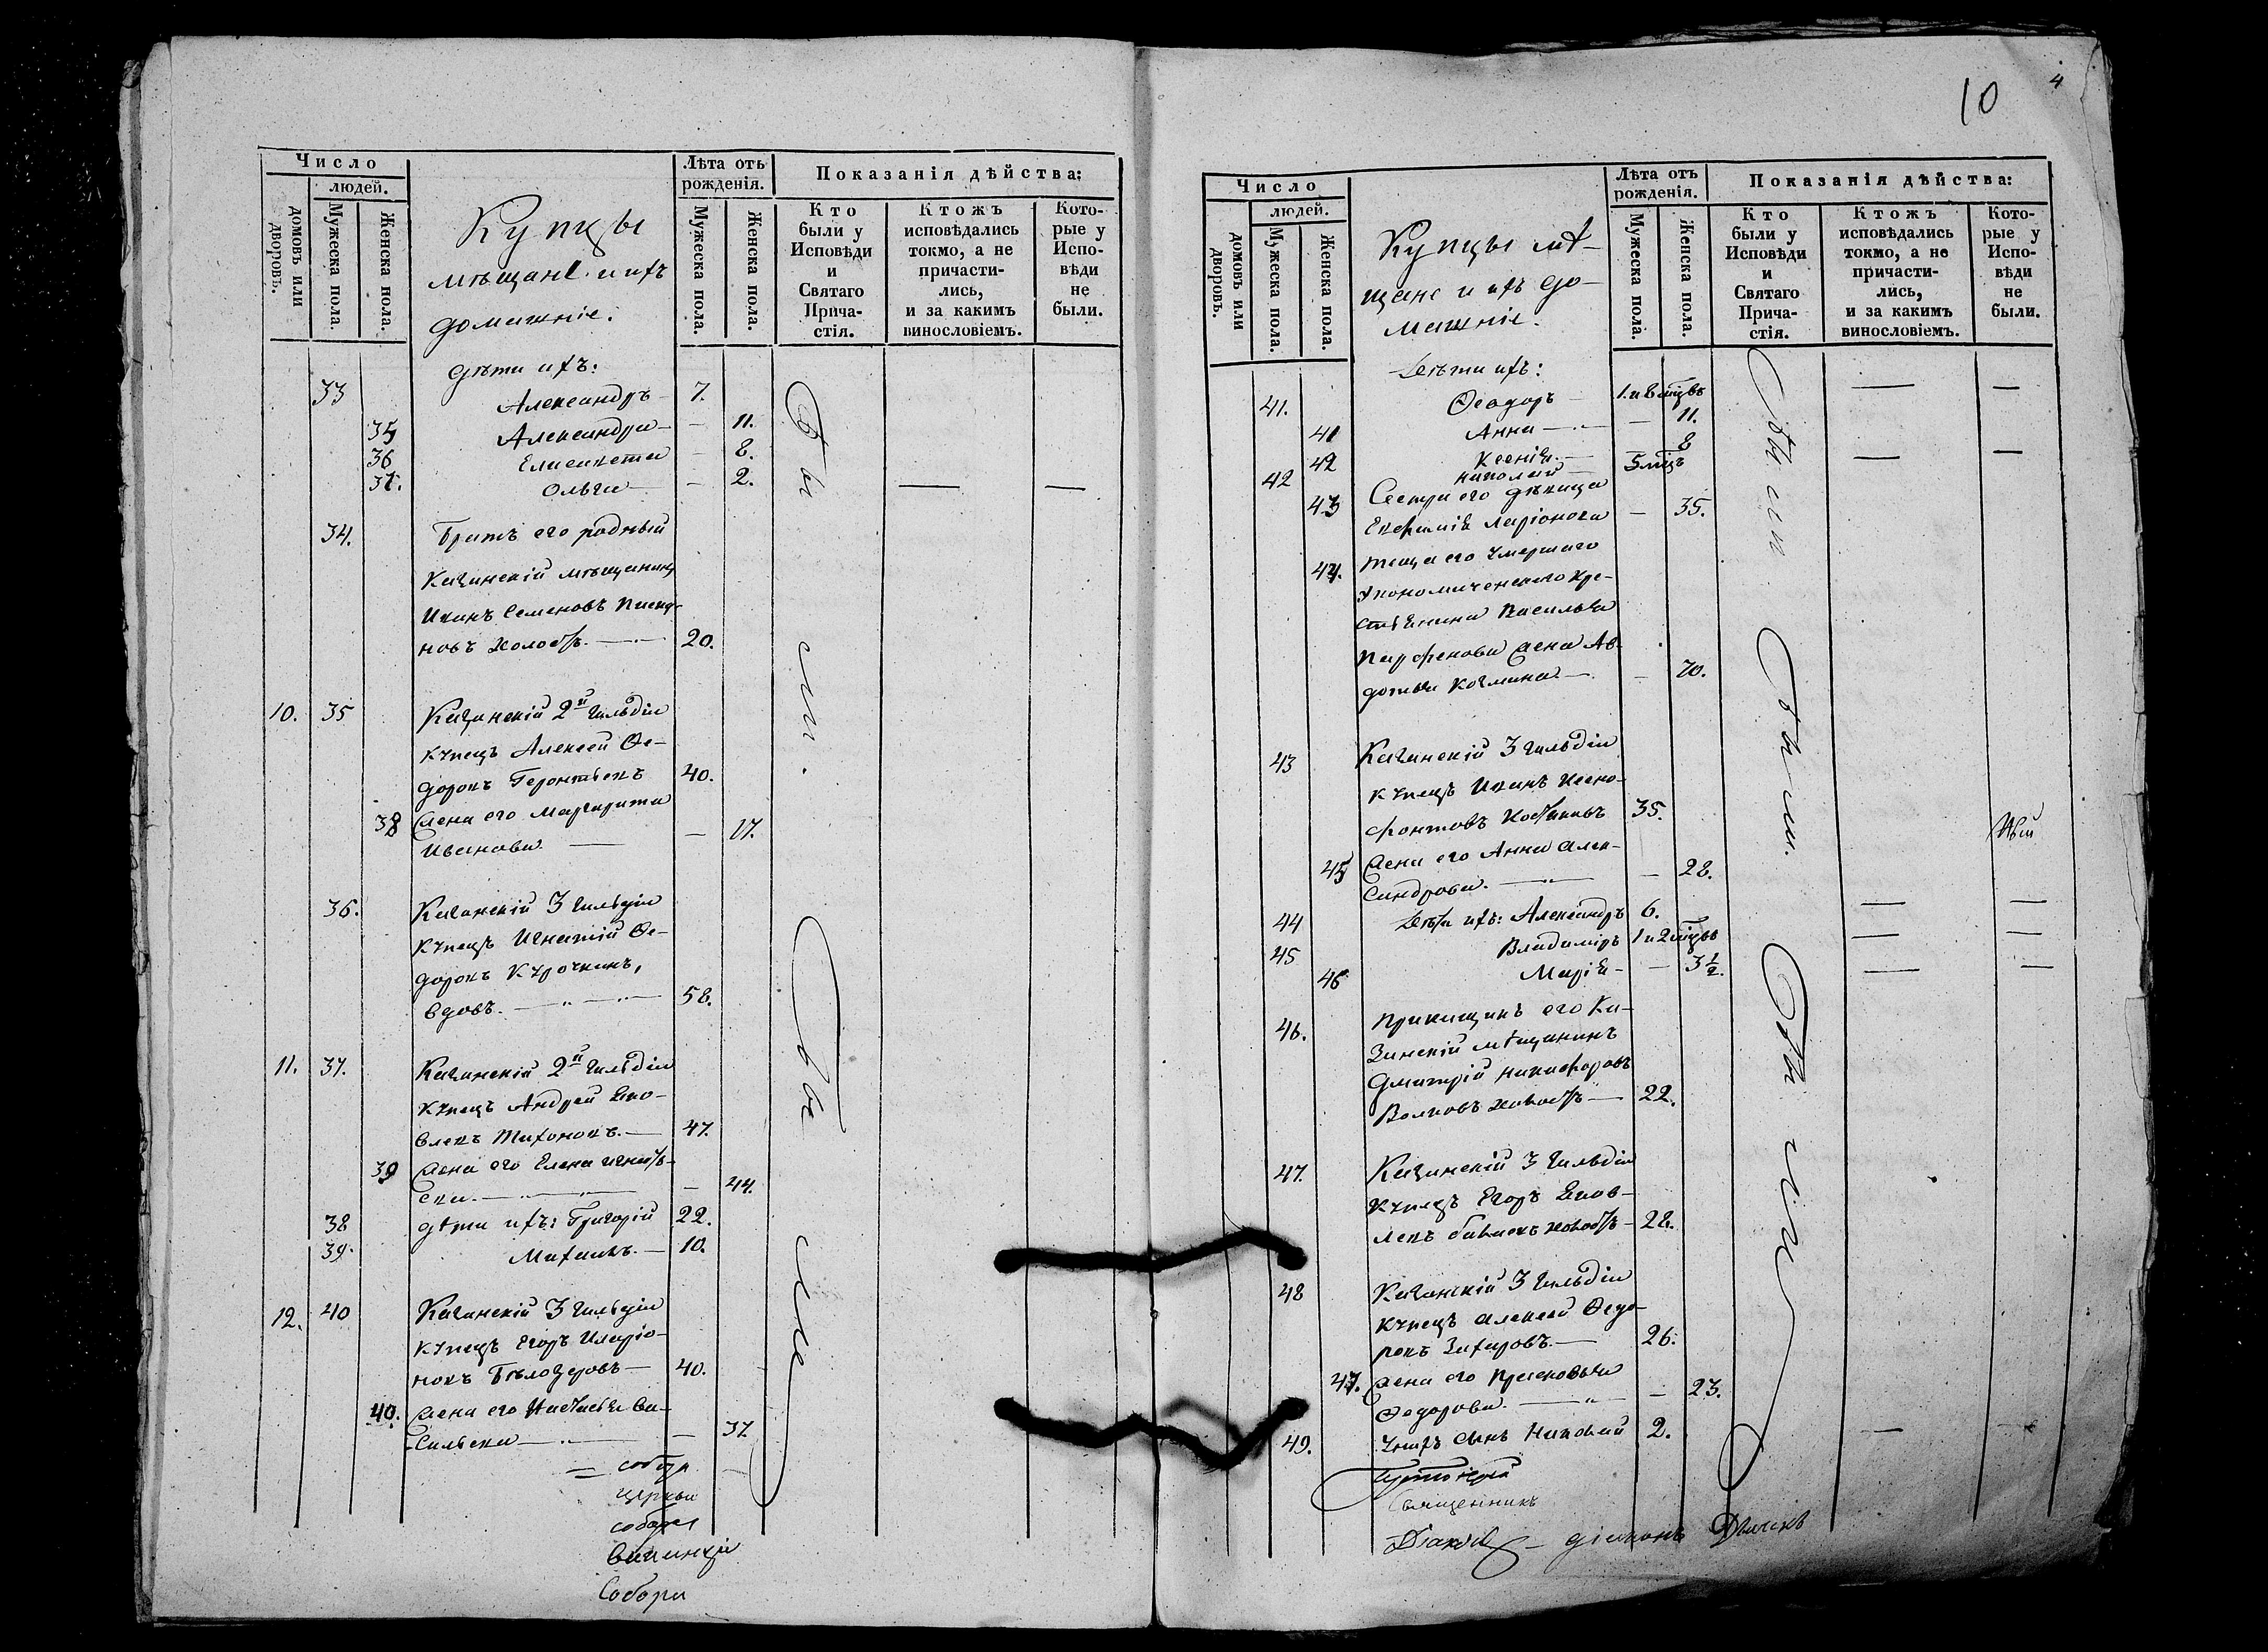 Число
людей.
домовъ или дворовъ.
Мужеска пола.
Женска пола.
Купцы
мѣщане и ихъ
домашніе.
Лѣта отъ рожденія.
Мужеска пола.
Женска пола.
Показанія дѣйства:
Кто были у Исповѣди и Святаго Прича-стія.
Ктожъ исповѣдались токмо, а не причасти-лись, и за какимъ винословіемъ.
Кото-рые у Испо-вѣди не были.
дѣти ихъ:
33 Александръ 7.
35 Александра — 11.
36 Елисавета — 8.
37. Ольга — 2.
34. Братъ его родный
Казанскій мѣщанинъ
Иванъ Семеновъ
новъ холостъ. 20.
10. 35 Казанскій 2й гильдіи
купецъ Алексей Фе-
доровъ Геронтьевъ 40.
38 Жена его Маргарита
Иванова — 17.
36. Казанскій 3 гильдіи
купецъ Игнатій Фе-
доровъ Курочкинъ,
вдовъ. 58.
11. 37. Казанскій 2й гильдіи
купецъ Андрей Яко-
влевъ Тихоновъ. 47.
39 Жена его Елена Игнать-
ева. — 44.
38 дѣти ихъ: Григорій 22.
39. Михаилъ. 10.
12. 40 Казанскій 3 гильдіи
купецъ Егоръ Иларіо-
новъ Бѣлозеровъ 40.
40. Жена его Настасья Ва-
сильева — 37
Были.
Были
собора
церкви
собора
Собора
10
4
Число
людей.
домовъ или дворовъ.
Мужеска пола.
Женска пола.
Купцы мѣ-
щане и ихъ до-
машніе.
Лѣта отъ рожденія.
Мужеска пола.
Женска пола.
Показанія дѣйства:
Кто были у Исповѣди и Святаго Прича-стія.
Ктожъ исповѣдались токмо, а не причасти-лись, и за какимъ винословіемъ.
Кото-рые у Испо-вѣди не были.
Дѣти ихъ:
41. Феодоръ 1. и 8 мцвъ
41 Анна — 11.
42 Ксенія 8
42 Николай 5 мцъ
43 Сестра его дѣвица
Евфимія Ларіонова — 35.
44. Теща его умершаго
Экономическаго кре-
стьянина Василья
Парфенова жена Ав-
дотья Козмина — 70.
43 Казанскій 3 гильдіи
купецъ Иванъ Ксено-
фонтовъ 35.
45 Жена его Анна Алек-
сандрова. — 28.
44 Дѣти ихъ: Александръ 6.
45 Владиміръ 1 и 2 мцвъ
46 Марія — 3 1/2.
46. Прикащикъ его Ка-
занскій мѣщанинъ
Дмитрій Никифоровъ
Волковъ холостъ 22.
47. Казанскій 3 гильдіи
купецъ Егоръ Яков-
левъ холостъ 28.
48 Казанскій 3 гильдіи
купецъ Алексей Федо-
ровъ Захаровъ. 26.
47. Жена его Прасковья
Федорова. — 23.
49. У нихъ сынъ Николай 2.
Были
Были.
Были
Протоіерей
Священникъ
Діаконъ — діаконъ